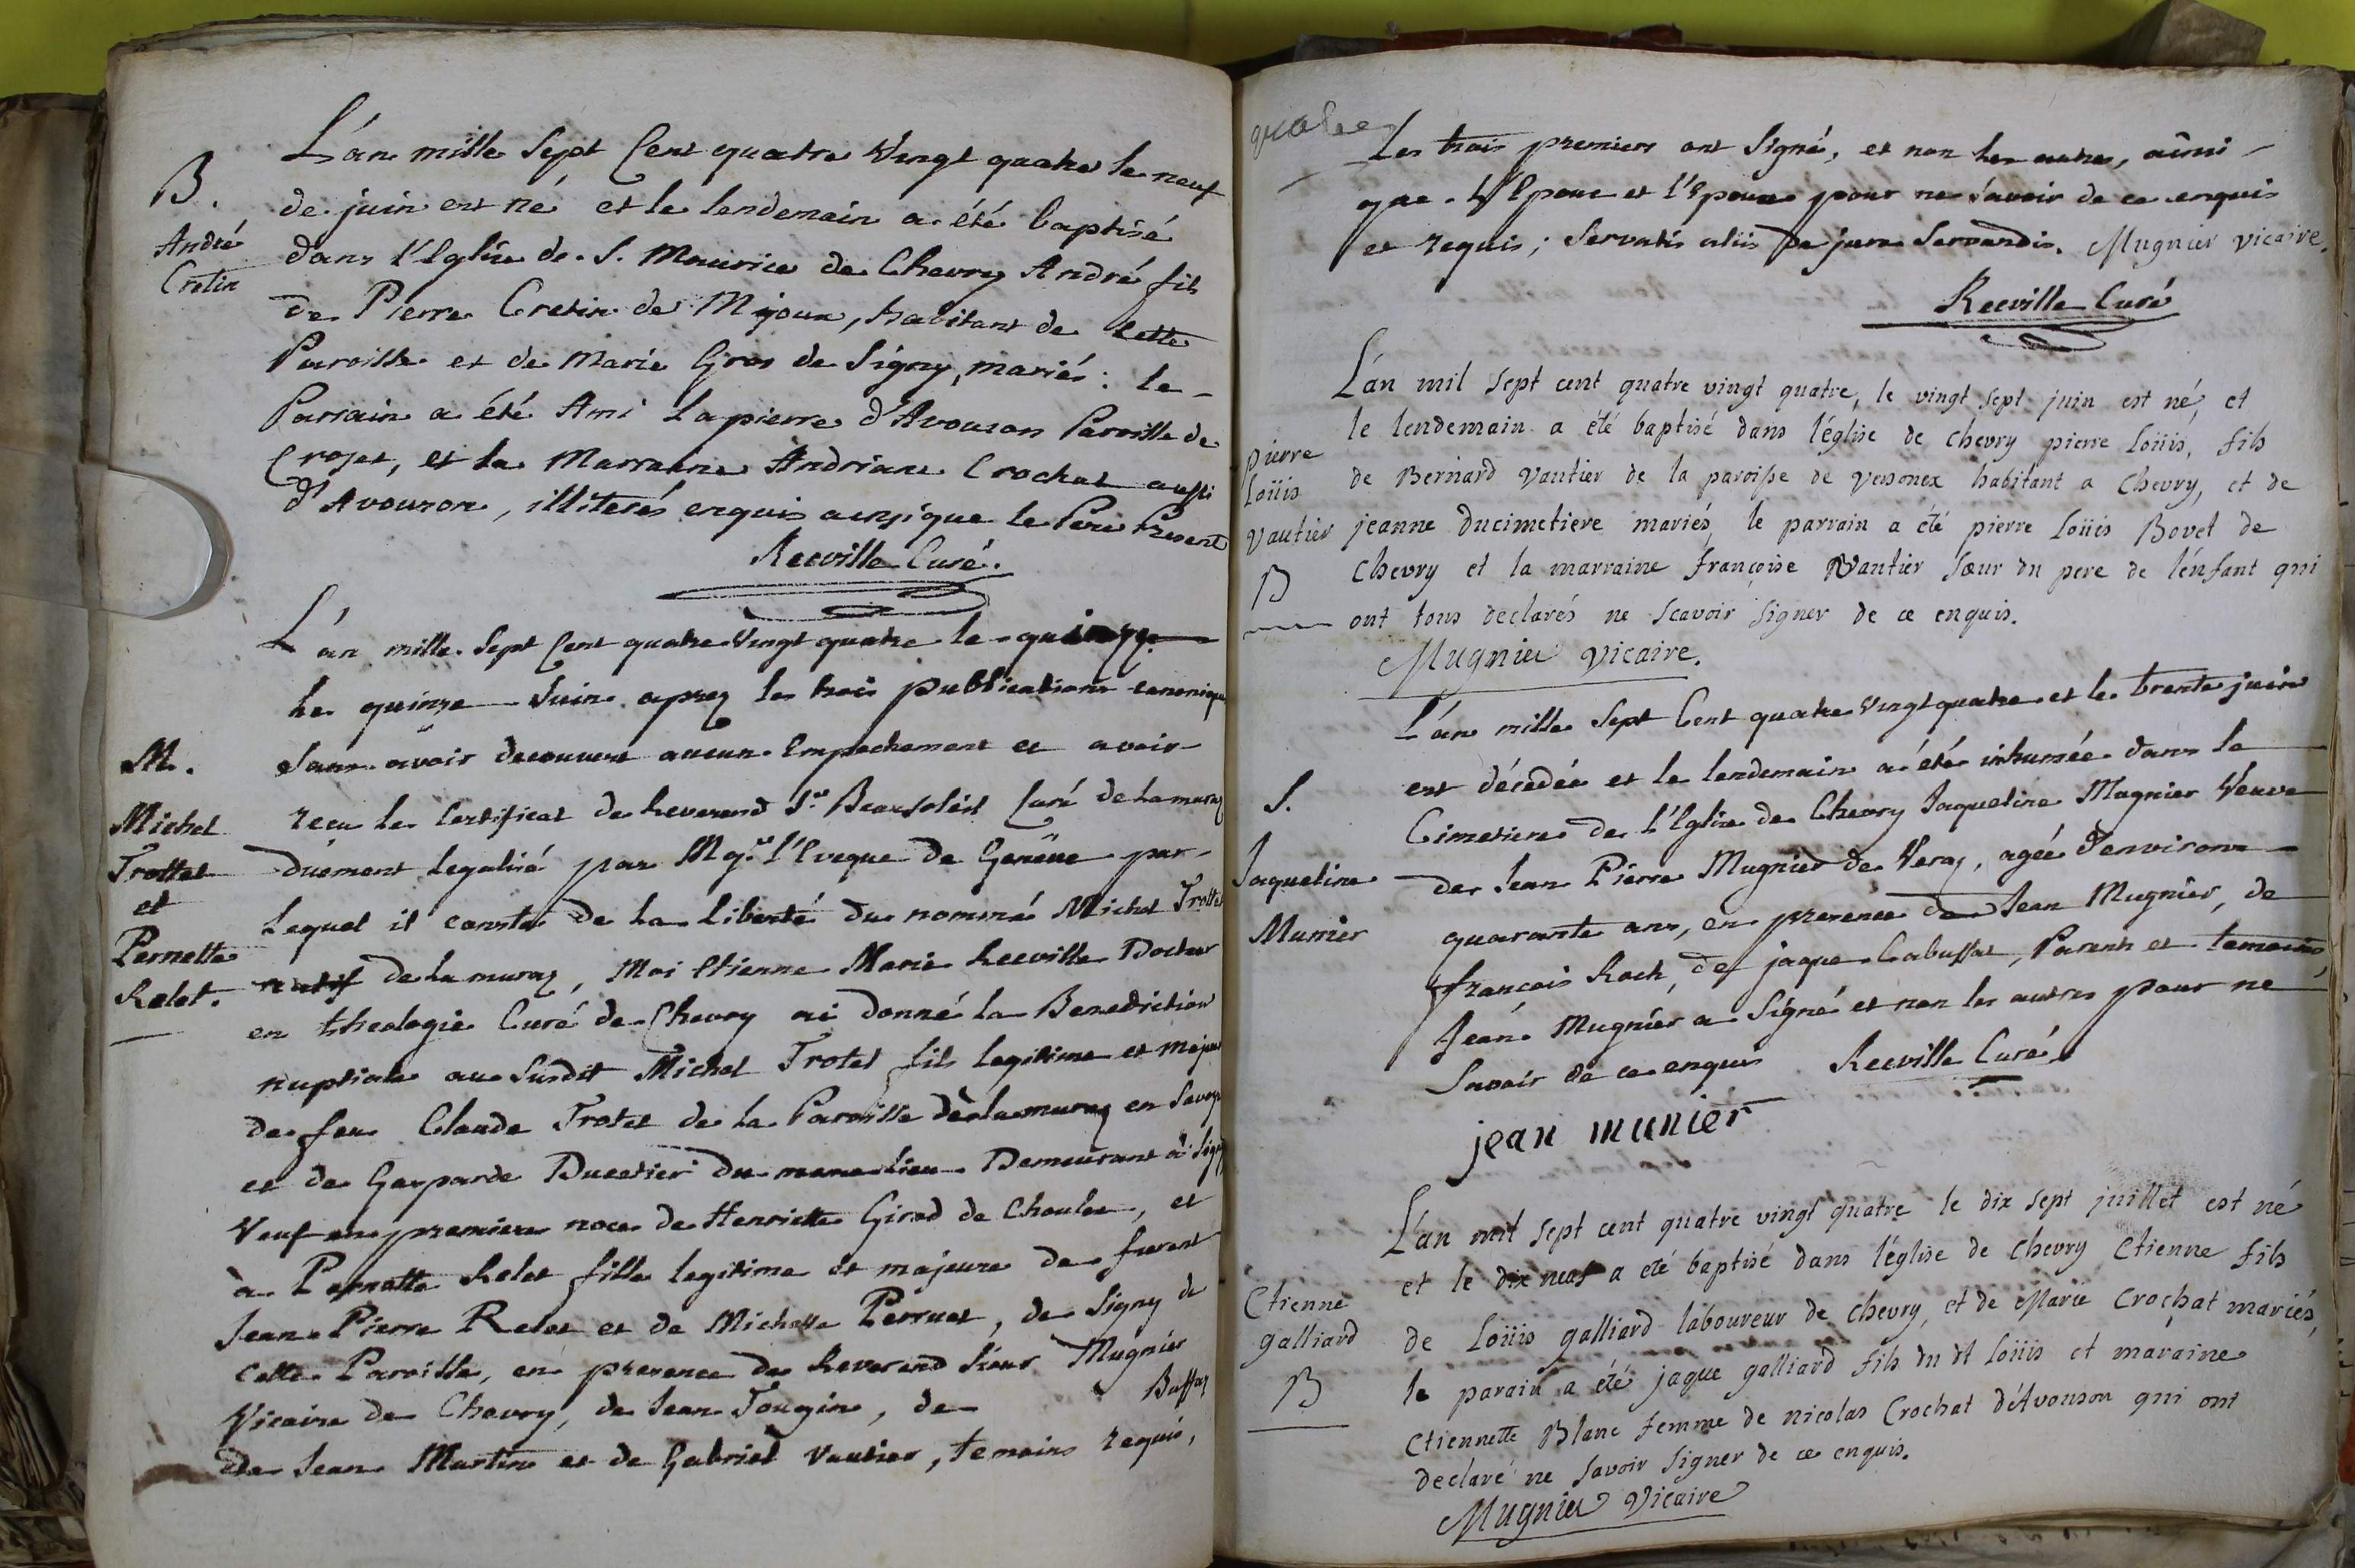 B.
André
Cretin
L'an mille Sept Cent quatre Vingt quatre le neuf
de juin est né et le lendemain a été baptisé
dans l'Eglise de S. Maurice de Chevry André fils
de Pierre Cretin de Mijoux, habitant de cette
Paroisse et de Marie Gros de Signy, mariés : le
Parrain a été Ami Lapierre d'Avouson Paroisse de
Crozet, et la Marraine Andriane Crochat aussi
d'Avouson, illiterés enquis ainsique le Pere Present
Reeville Curé.
M.
Michel
Trottet
et
Pernette
Relet.
L'an mille Sept Cent quatre Vingt quatre le quinze
le quinze Juin aprez les trois publications canoniques
sans avoir decouvert aucun Empechement et avoir
recu le Certificat de Reverend Sr. Beausoleil Curé de Lamuraz
duement legalisé par Mgr. l'Eveque de Genêve par
lequel il conste de la liberté du nommé Michel Trottet
natif de Lamuraz, Moi Etienne Marie Reeville Docteur
en theologie Curé de Chevry ai donné la Benediction
nuptiale au Susdit Michel Trotet fils legitime et majeur
de feu Claude Trotet de la Paroisse de Lamuraz en Savoye
et de Gasparde Ducetier du meme lieu Demeurant à Signy
Veuf en premiere noce de Henriette Girod de Choulee, et
à Pernette Relet fille legitime et majeure de furent
Jean Pierre Relet et de Michelle Perruet, de Signy de
cette Paroisse, en presence de Reverend Sieur Mugnier
Vicaire de Chevry, de Jean Tougin, de Buffaz
de Jean Martin et de Gabriel Vautier, temoins requis,
Les trois premiers ont Signé, et non les autres, ainsi
que l'Epoux et l'Epouse pour ne savoir de ce enquis
et requis ; Servatis aliis de jure Servandis. Mugnier vicaire.
Reeville Curé
pierre
Loüis
Vautier
B
L'an mil sept cent quatre vingt quatre, le vingt sept juin est né, et
le lendemain a été baptisé dans l'église de chevry pierre Loüis, fils
de Bernard Vautier de la paroisse de versonex habitant a Chevry, et de
jeanne ducimetiere mariés, le parrain a été pierre Loüis Bovet de
Chevry et la marraine françoise Vantier sœur du pere de l'énfant qui
ont tous declarés ne scavoir signer de ce enquis.
Mugnier Vicaire.
S.
Jaqueline
Munier
L'an mille Sept Cent quatre Vingt quatre et le trente juin
est décedée et le lendemain a été inhumée dans le
Cimetiere de l'Eglise de Chevry Jaqueline Mugnier Veuve
de Jean Pierre Mugnier de Veraz, agée d'environ
quarante ans, en presence de Jean Mugnier, de
françois Roch, de jaque Cabussat, Parents et temoins,
Jean Mugnier a Signé et non les autres pour ne
Savoir de ce enquis Reeville Curé
jean munier
Etienne
galliard
B
L'an mil sept cent quatre vingt quatre le dix sept juillet est né
et le dix neuf a eté baptisé dans l'église de chevry Etienne fils
de Loüis galliard laboureur de chevry, et de Marie Crochat mariés,
le parain a été jaque galliard fils du dt Loüis et maraine
Etiennette Blanc femme de nicolas Crochat d'Avouson qui ont
declaré ne savoir signer de ce enquis.
Mugnier Vicaire